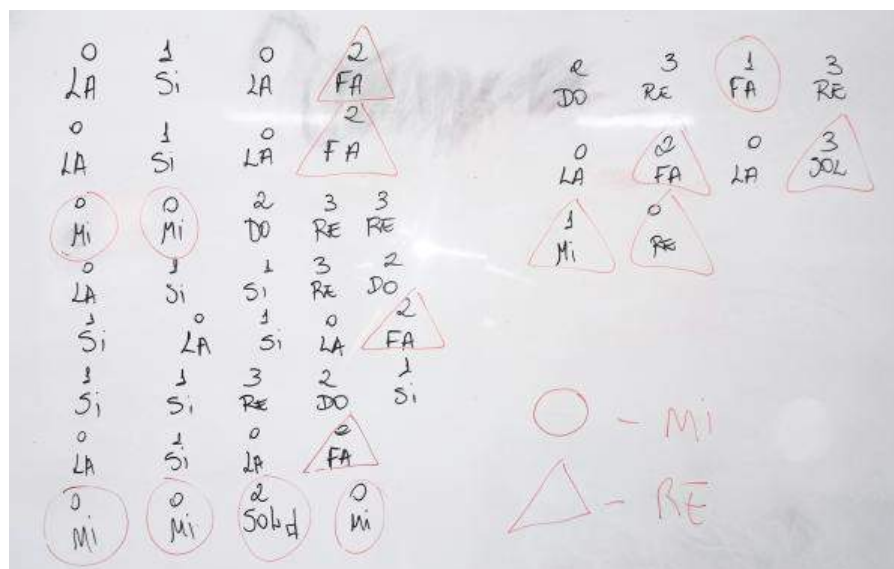 0 1 0 2
LA Si LA FA
0 1 0 2
LA Si LA FA
0 0 2 3 3
Mi Mi DO RE RE
0 1 1 3 2
LA Si Si RE DO
1 0 1 0 2
Si LA Si LA FA
1 1 3 2 1
Si Si RE DO Si
0 1 0 2
LA Si LA FA
0 0 2 0
Mi Mi SOL Mi
2 3 1 3
DO RE FA RE
0 2 0 3
LA FA LA SOL
1 0
Mi RE
- Mi
- RE